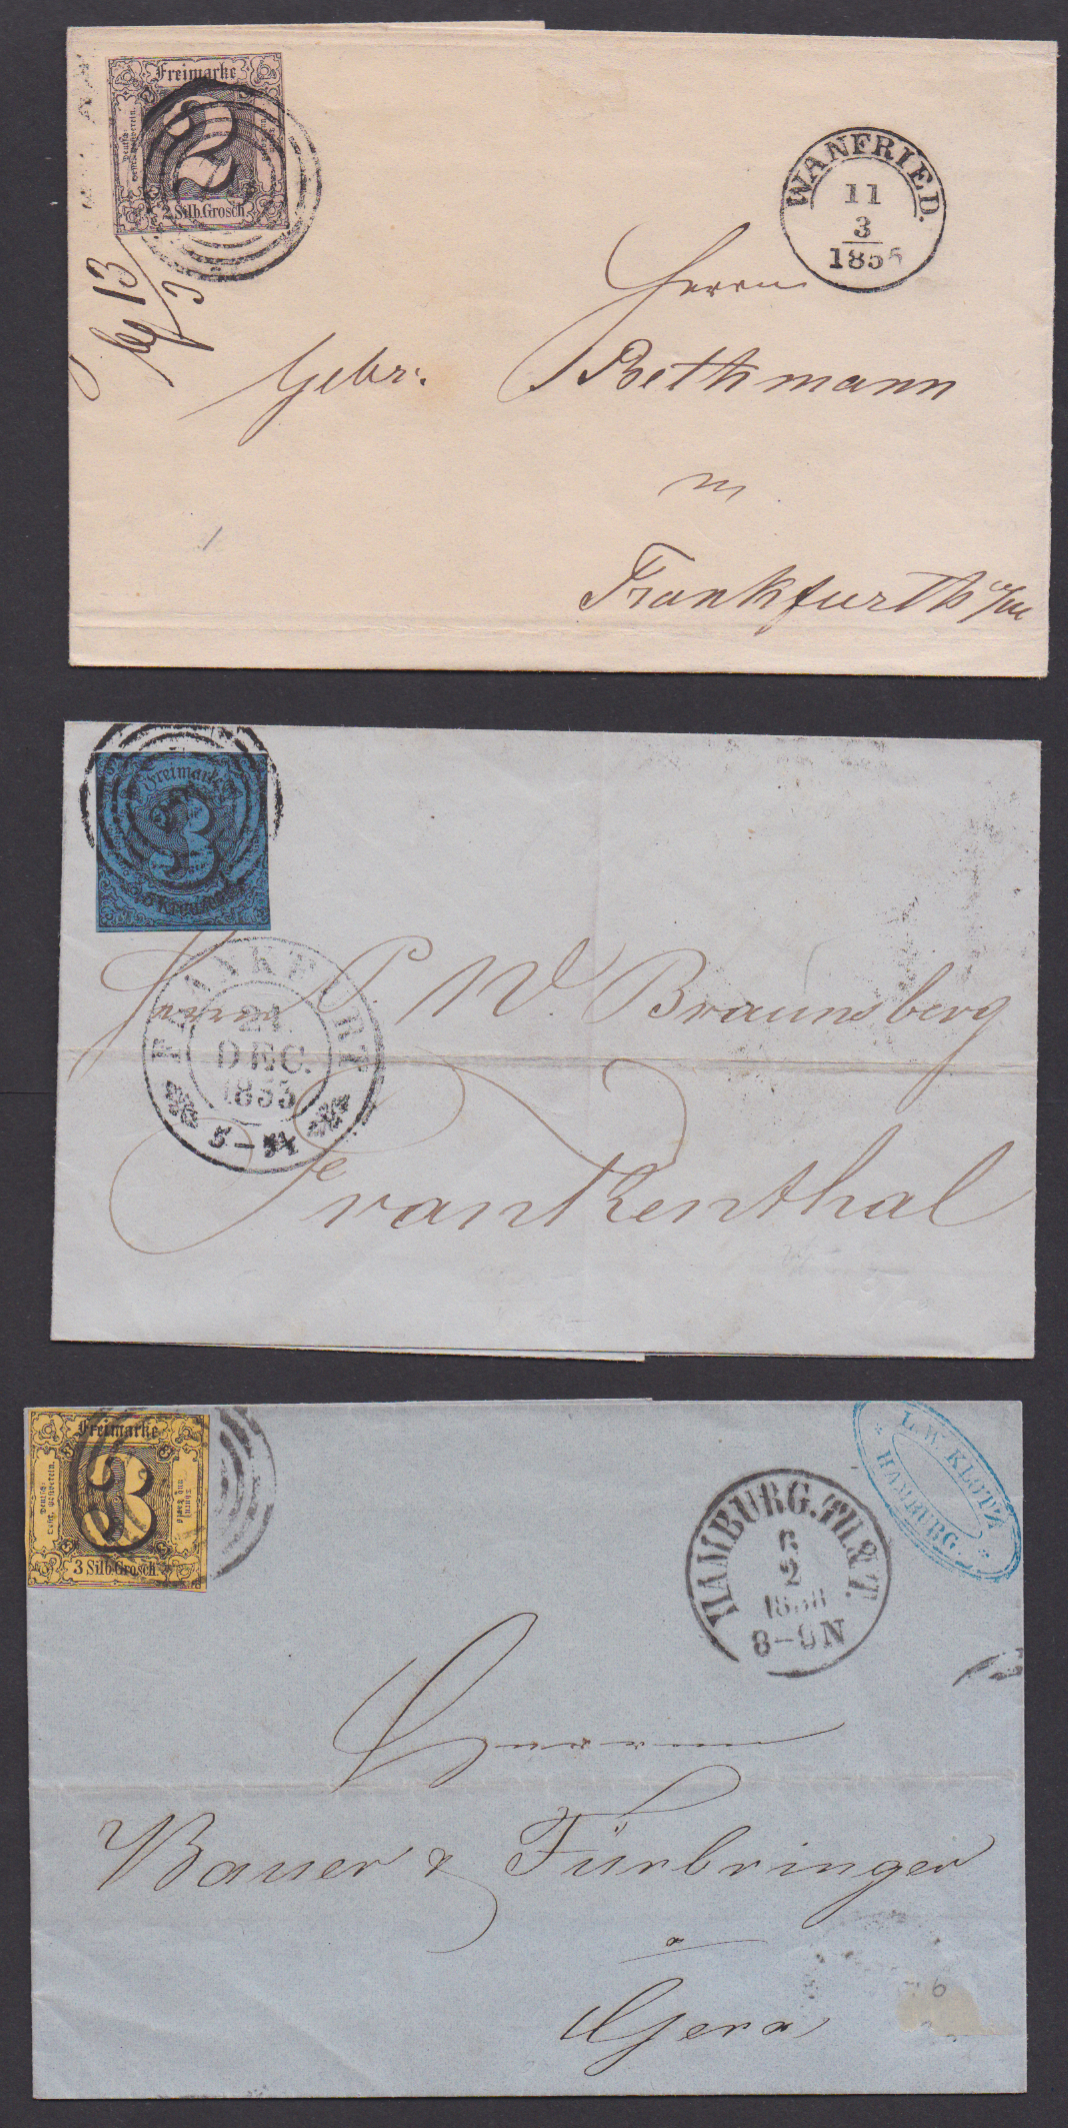 Freimarke
2
2 Silb. Grosch
13
3
WANFRIED.
11
3
185
Herrn
Gebr: Bethmann
in
Frankfurth a/m
Freimarke
3
3 Kreuzer
FRANKFURT
DEC.
1853
Herrn P. W. Braunsberg
Frankenthal
Freimarke
Deutsch-
Oestr. Postverein.
3
3 Silb. Grosch
HAMBURG. TH. & T.
2
1858
8-9N
L. W. KLOTZ
HAMBURG.
Herrn
Bauer & Fürbringer
a
Gera